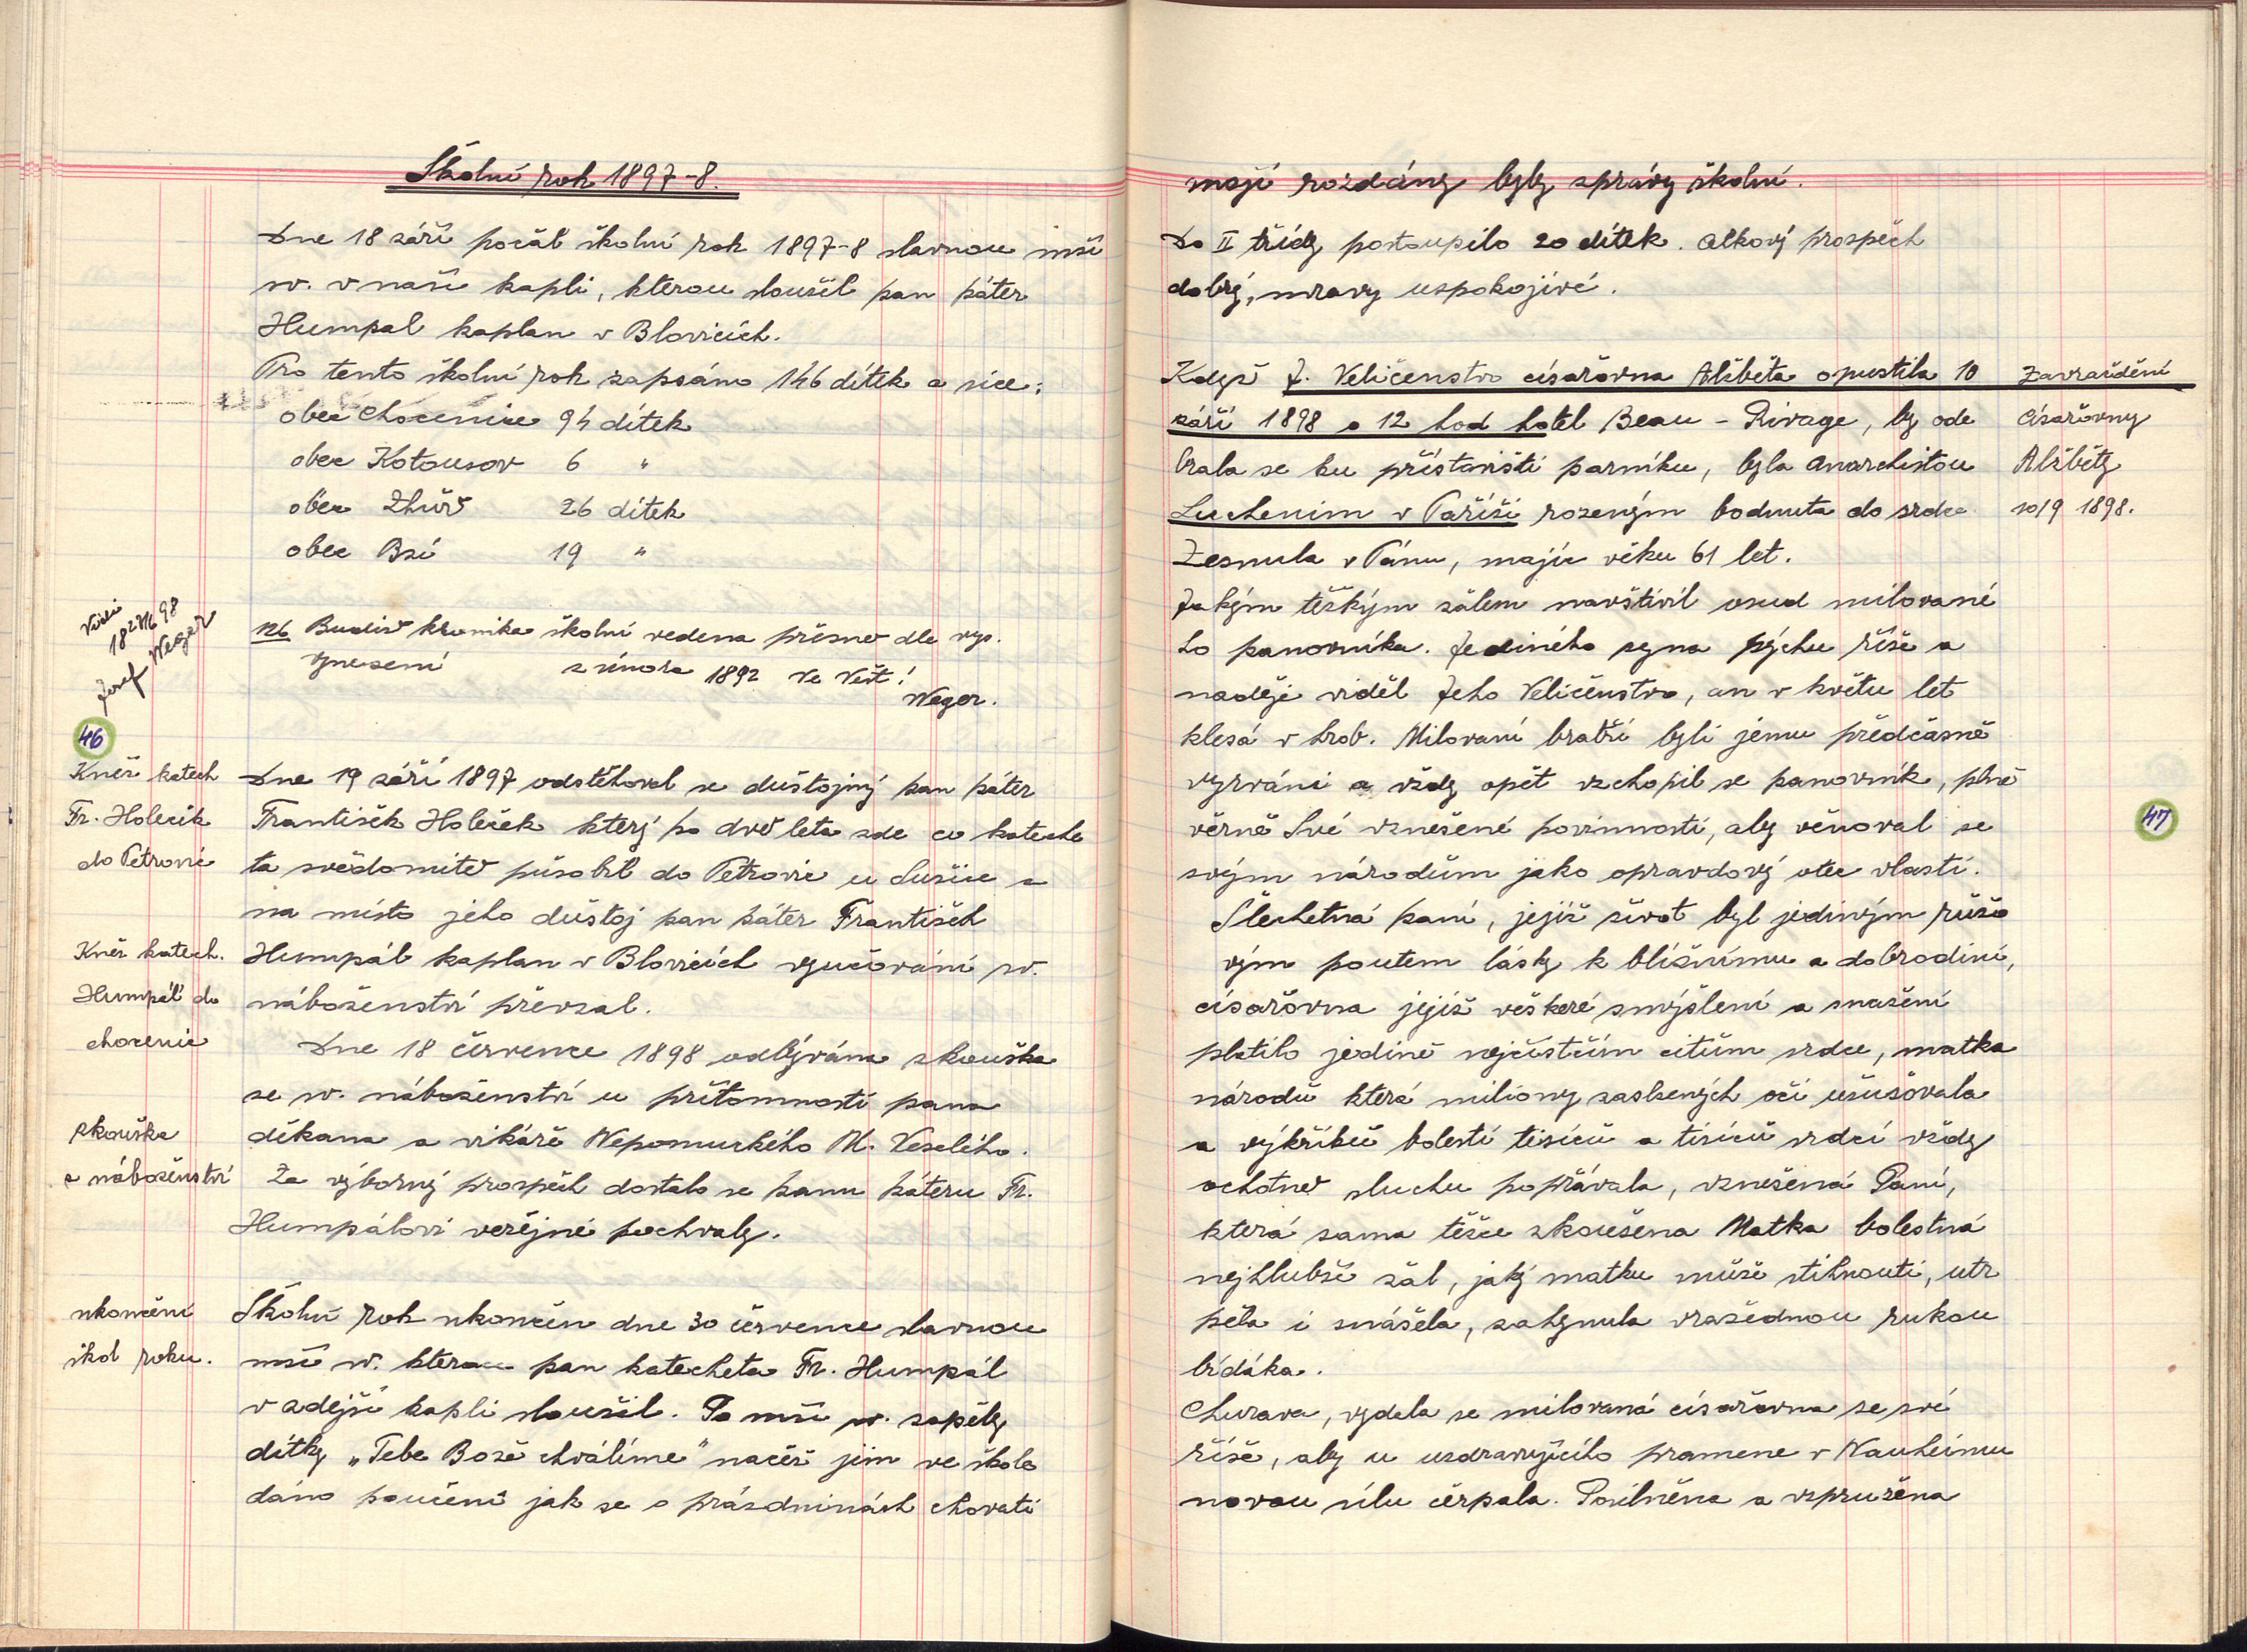 Školní rok 1897-8.
Dne 18 září počal školní rok 1897-8 slavnou mší
sv. v naší kapli, kterou sloužil pan páter
Humpal kaplan v Blovicích.
Pro tento školní rok zapsáno 146 dítek a sice:
obec Chocenice 94 dítek
obec Kotousov 6 "
obec Zhůř 26 dítek
obec Bzí 19 "
Viděl
18 2/VI 98
Josef Weger
NB Budiž kronika školní vedena přesně dle vys.
vynesení z února 1892 Ve Vešt!
Weger.
46
Kněz katech
Fr. Holeček
do Petrovic
Dne 19 září 1897 odstěhoval se důstojný pan páter
František Holeček který po dvě leta zde co kateche
ta svědomitě působil do Petrovic u Sušice a
na místo jeho důstoj pan páter František
Kněz katech.
Humpál do
Chocenic
Humpál kaplan v Blovicích vyučování sv.
náboženství převzal.
Dne 18 července 1898 odbývána zkouška
ze sv. náboženství u přítomnosti pana
zkouška
z náboženství
děkana a vikáře Nepomuckého M. Veselého.
Za výborný prospěch dostalo se panu páteru Fr.
Humpálovi veřejné pochvaly.
ukončení
škol roku.
Školní rok ukončen dne 30 července slavnou
mší sv. kterou pan katecheta Fr. Humpál
v zdejší kapli sloužil. Po mši sv. zapěly
dítky „Tebe Bože chválíme" načež jim ve škole
dáno poučení jak se o prázdninách chovati
mají rozdány byly zprávy školní.
Do II třídy postoupilo 20 dítek. Celkový prospěch
dobrý, mravy uspokojivé.
Když J. Veličenstvo císařovna Alžběta opustila 10
září 1898 o 12 hod hotel Beau - Rivage, by ode
brala se ku přístavišti parníku, byla anarchistou
Luchenim v Paříži rozeným bodnuta do srdce
Zesnula v Pánu, majíc věku 61 let.
Zavraždění
Císařovny
Alžběty
10/9 1898.
Jakým těžkým žálem navštívil osud milované
ho panovníka. Jediného syna pýchu říše a
naděje viděl Jeho Veličenstvo, an v květu let
klesá v hrob. Milovaní bratři byli jemu předčasně
vyrváni a vždy opět vzchopil se panovník, plně
věrně Své vznešené povinnosti, aby věnoval se
svým národům jako opravdový otec vlasti.
47
Šlechetná paní, jejíž život byl jediným růžo
vým poutem lásky k bližnímu a dobrodiní,
císařovna jejíž veškeré smýšlení a snažení
platilo jedině nejčistčím citům srdce, matka
národů která miliony zaslzených očí usušovala
a výkřiků bolestí tisíců a tisíců srdcí vždy
ochotně sluchu popřávala, vznešená Paní,
která sama těžce zkoušena Matka bolestná
nejhlubší žal, jaký matku může stihnouti, utr
pěla i snášela, zahynula vražednou rukou
bídáka.
Churava, vydala se milovaná císařovna ze své
říše, aby u uzdravujícího pramene v Nauheimu
novou sílu čerpala. Posilněna a vzpružena